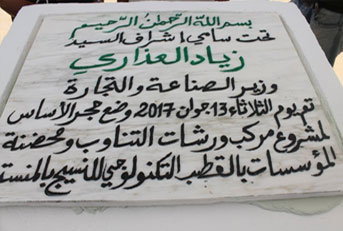 بسم الله الرحمان الرحيم
تحت سامي إشراف السيد
زياد العذاري
وزير الصناعة والتجارة
تم يوم الثلاثاء 13 جوان 2017 وضع حجر الأساس
لمشروع مركب ورشات التناوب ومحضنة
المؤسسات بالقطب التكنولوجي للنسيج بالمنست